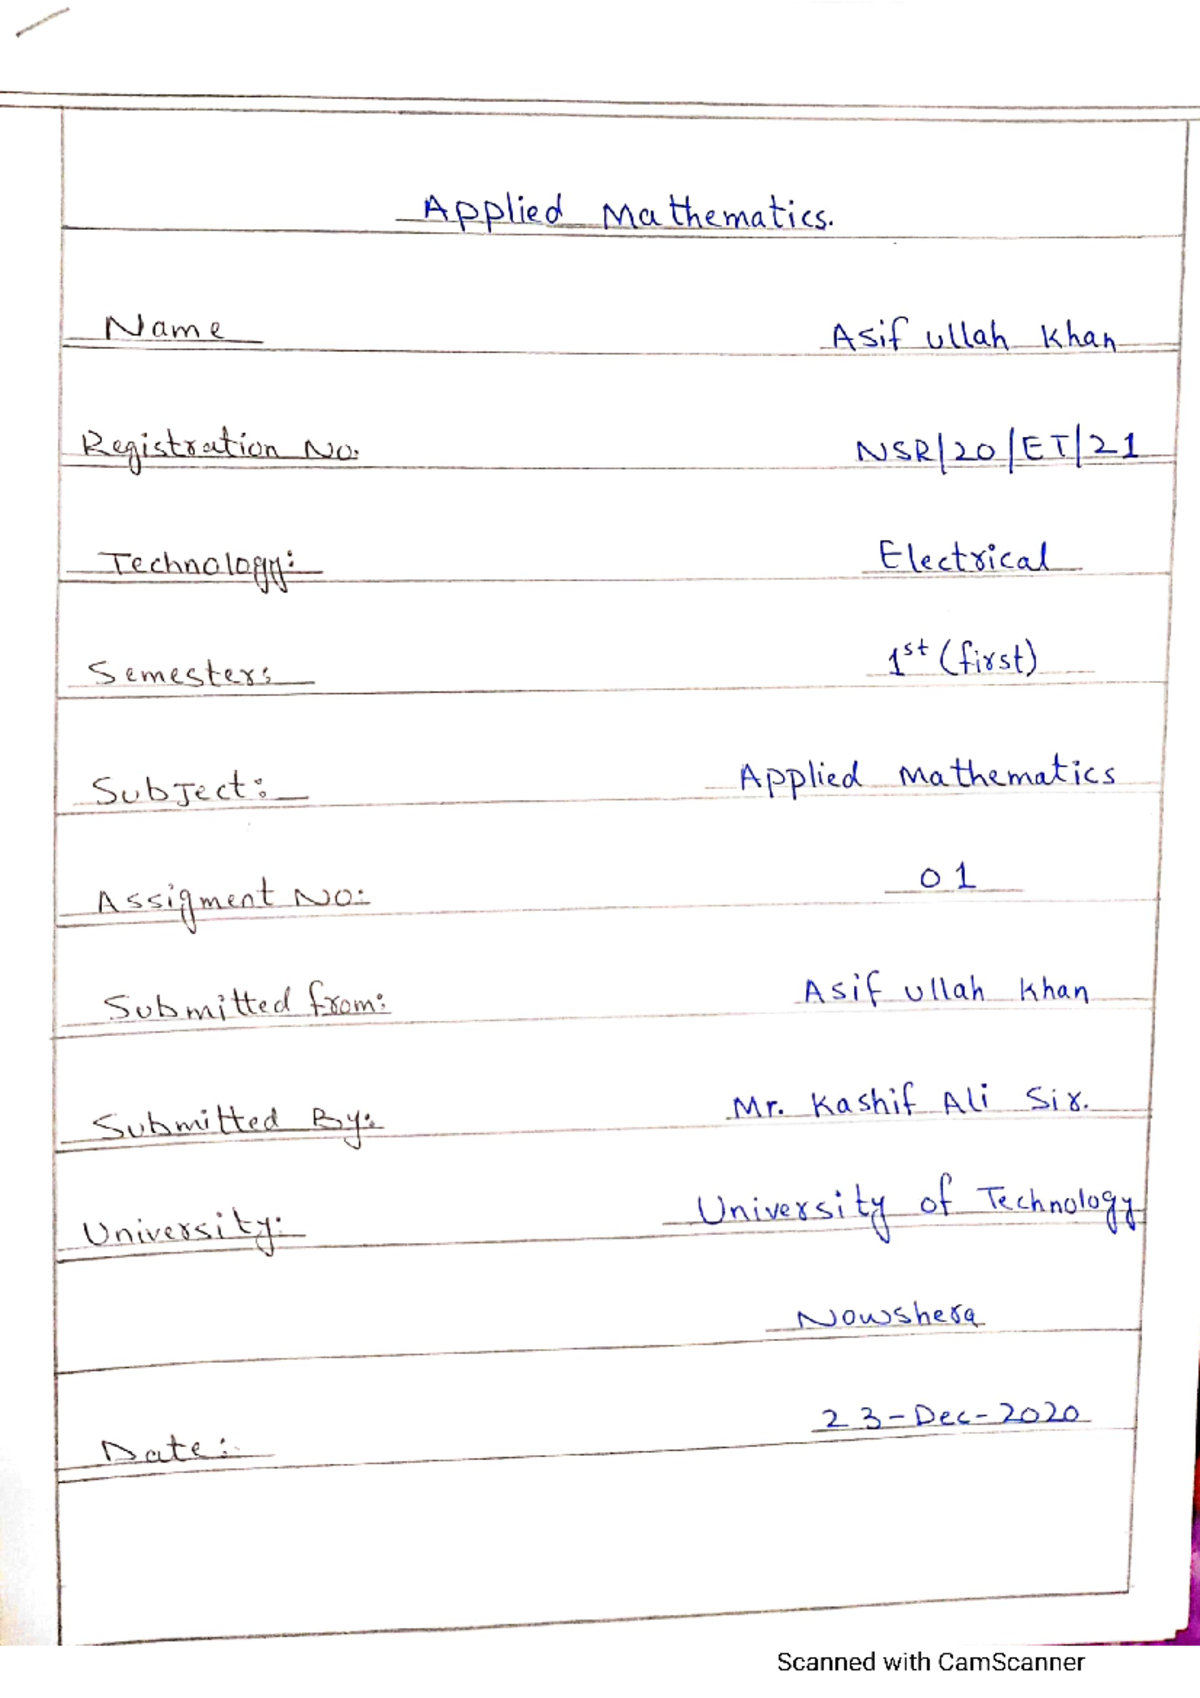 Applied Mathematics.
Name Asif ullah Khan
Registration No. NSR/20/ET/21
Technology: Electrical
Semester: 1st (first)
Subject: Applied Mathematics
Assigment No: 01
Submitted from: Asif ullah Khan
Submitted By: Mr. Kashif Ali Sir.
University: University of Technology
Nowshera
Date: 23-Dec-2020
Scanned with CamScanner